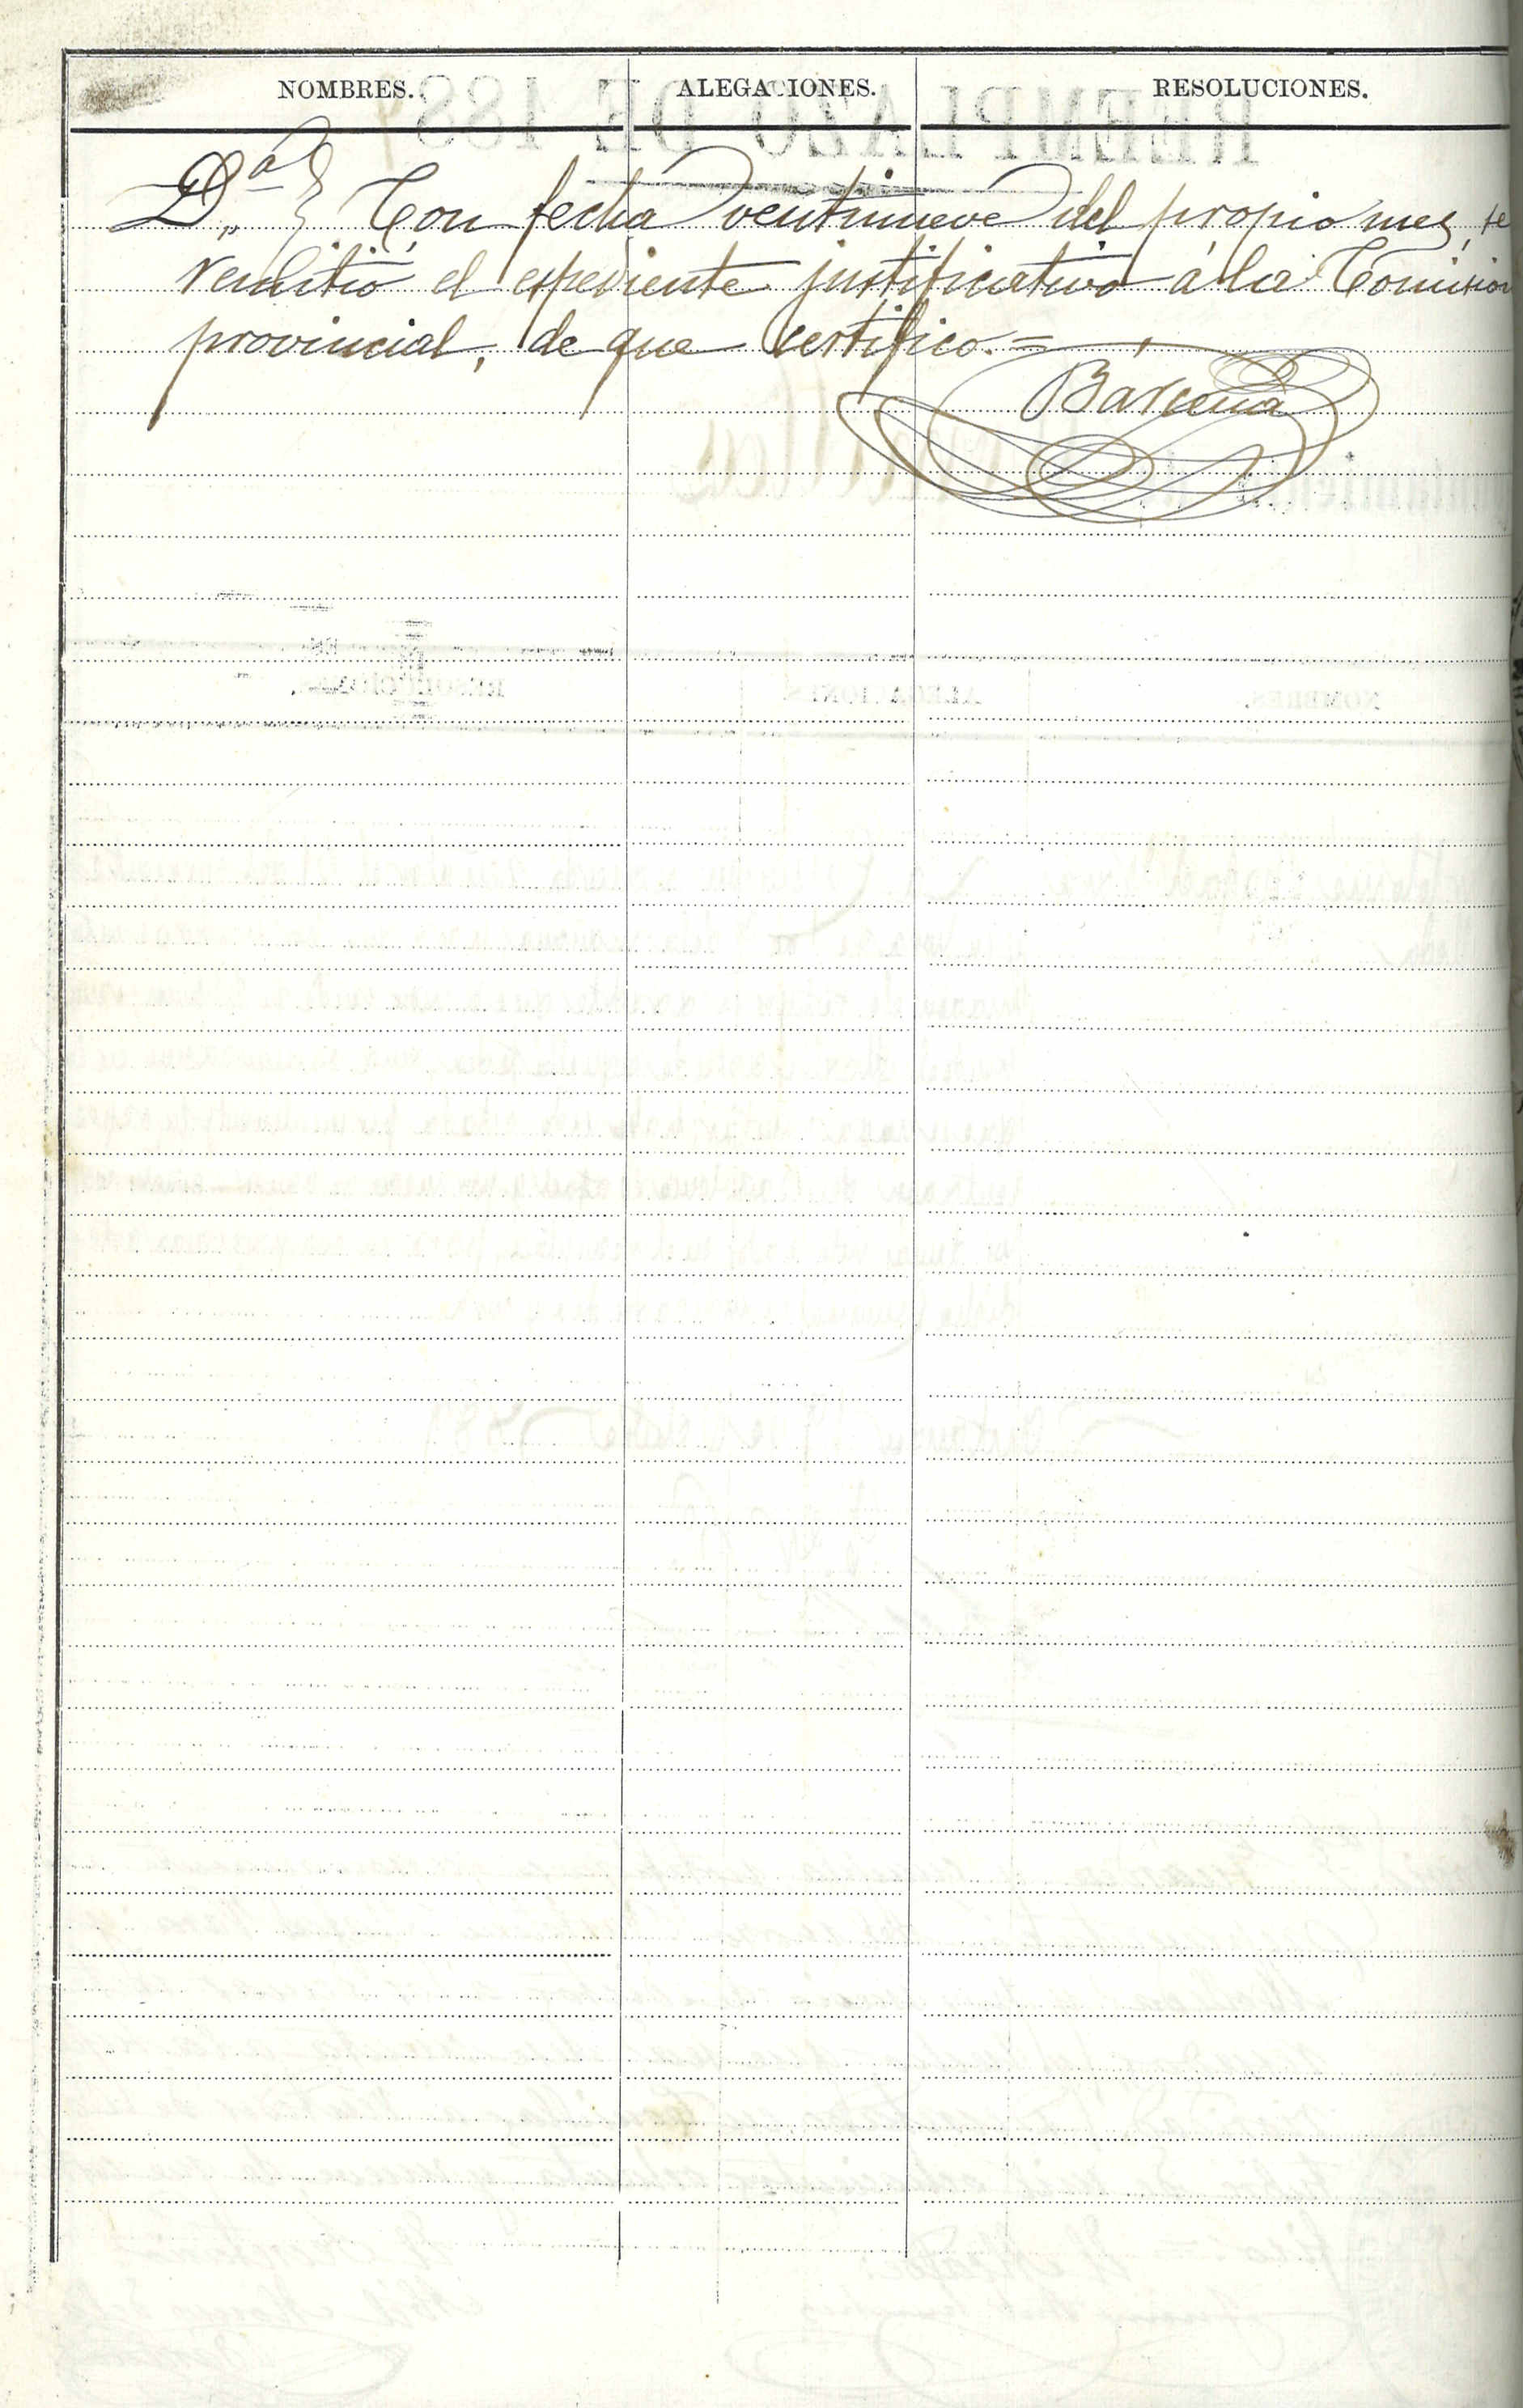 NOMBRES. ALEGACIONES. RESOLUCIONES.
D.ª } Con fecha veintinueve del propio mes, se
remitió el espediente justificativo á la Comision
provincial, de que certifico.=
Bárcena